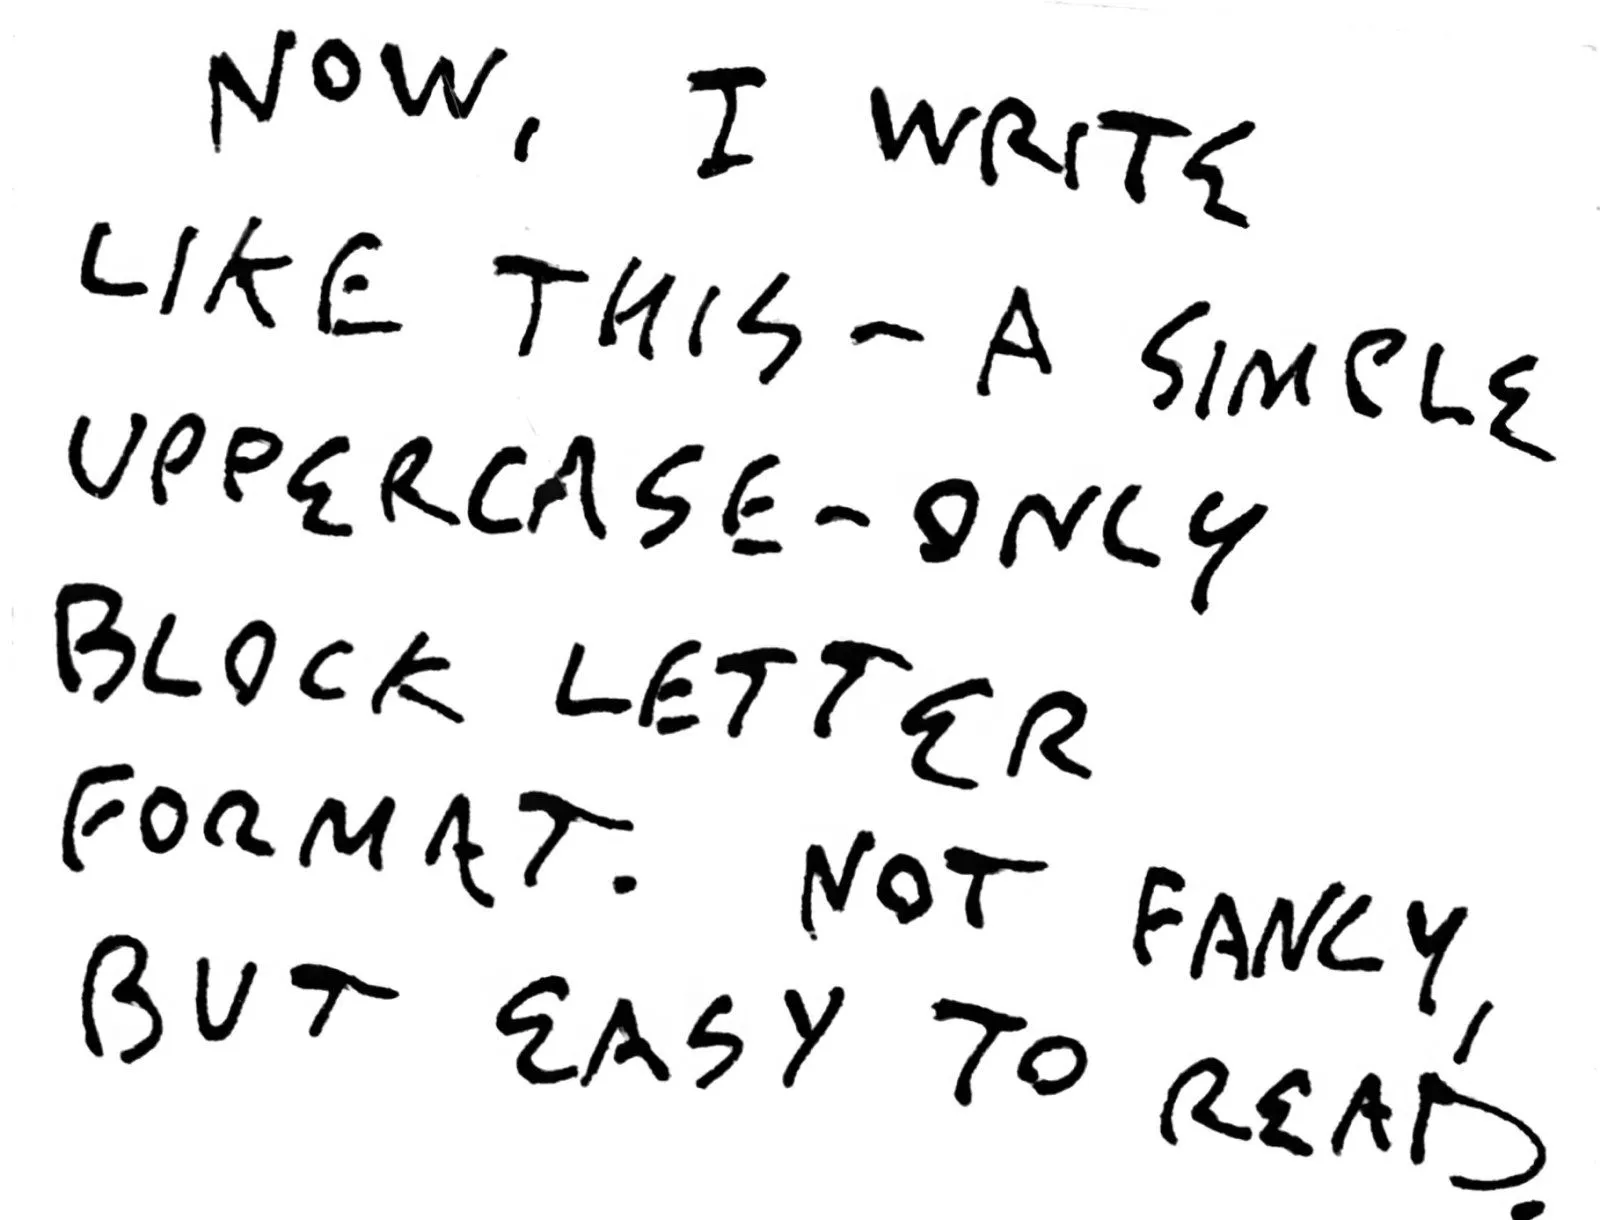 NOW, I WRITE
LIKE THIS - A SIMPLE
UPPERCASE-ONLY
BLOCK LETTER
FORMAT. NOT FANCY,
BUT EASY TO READ.